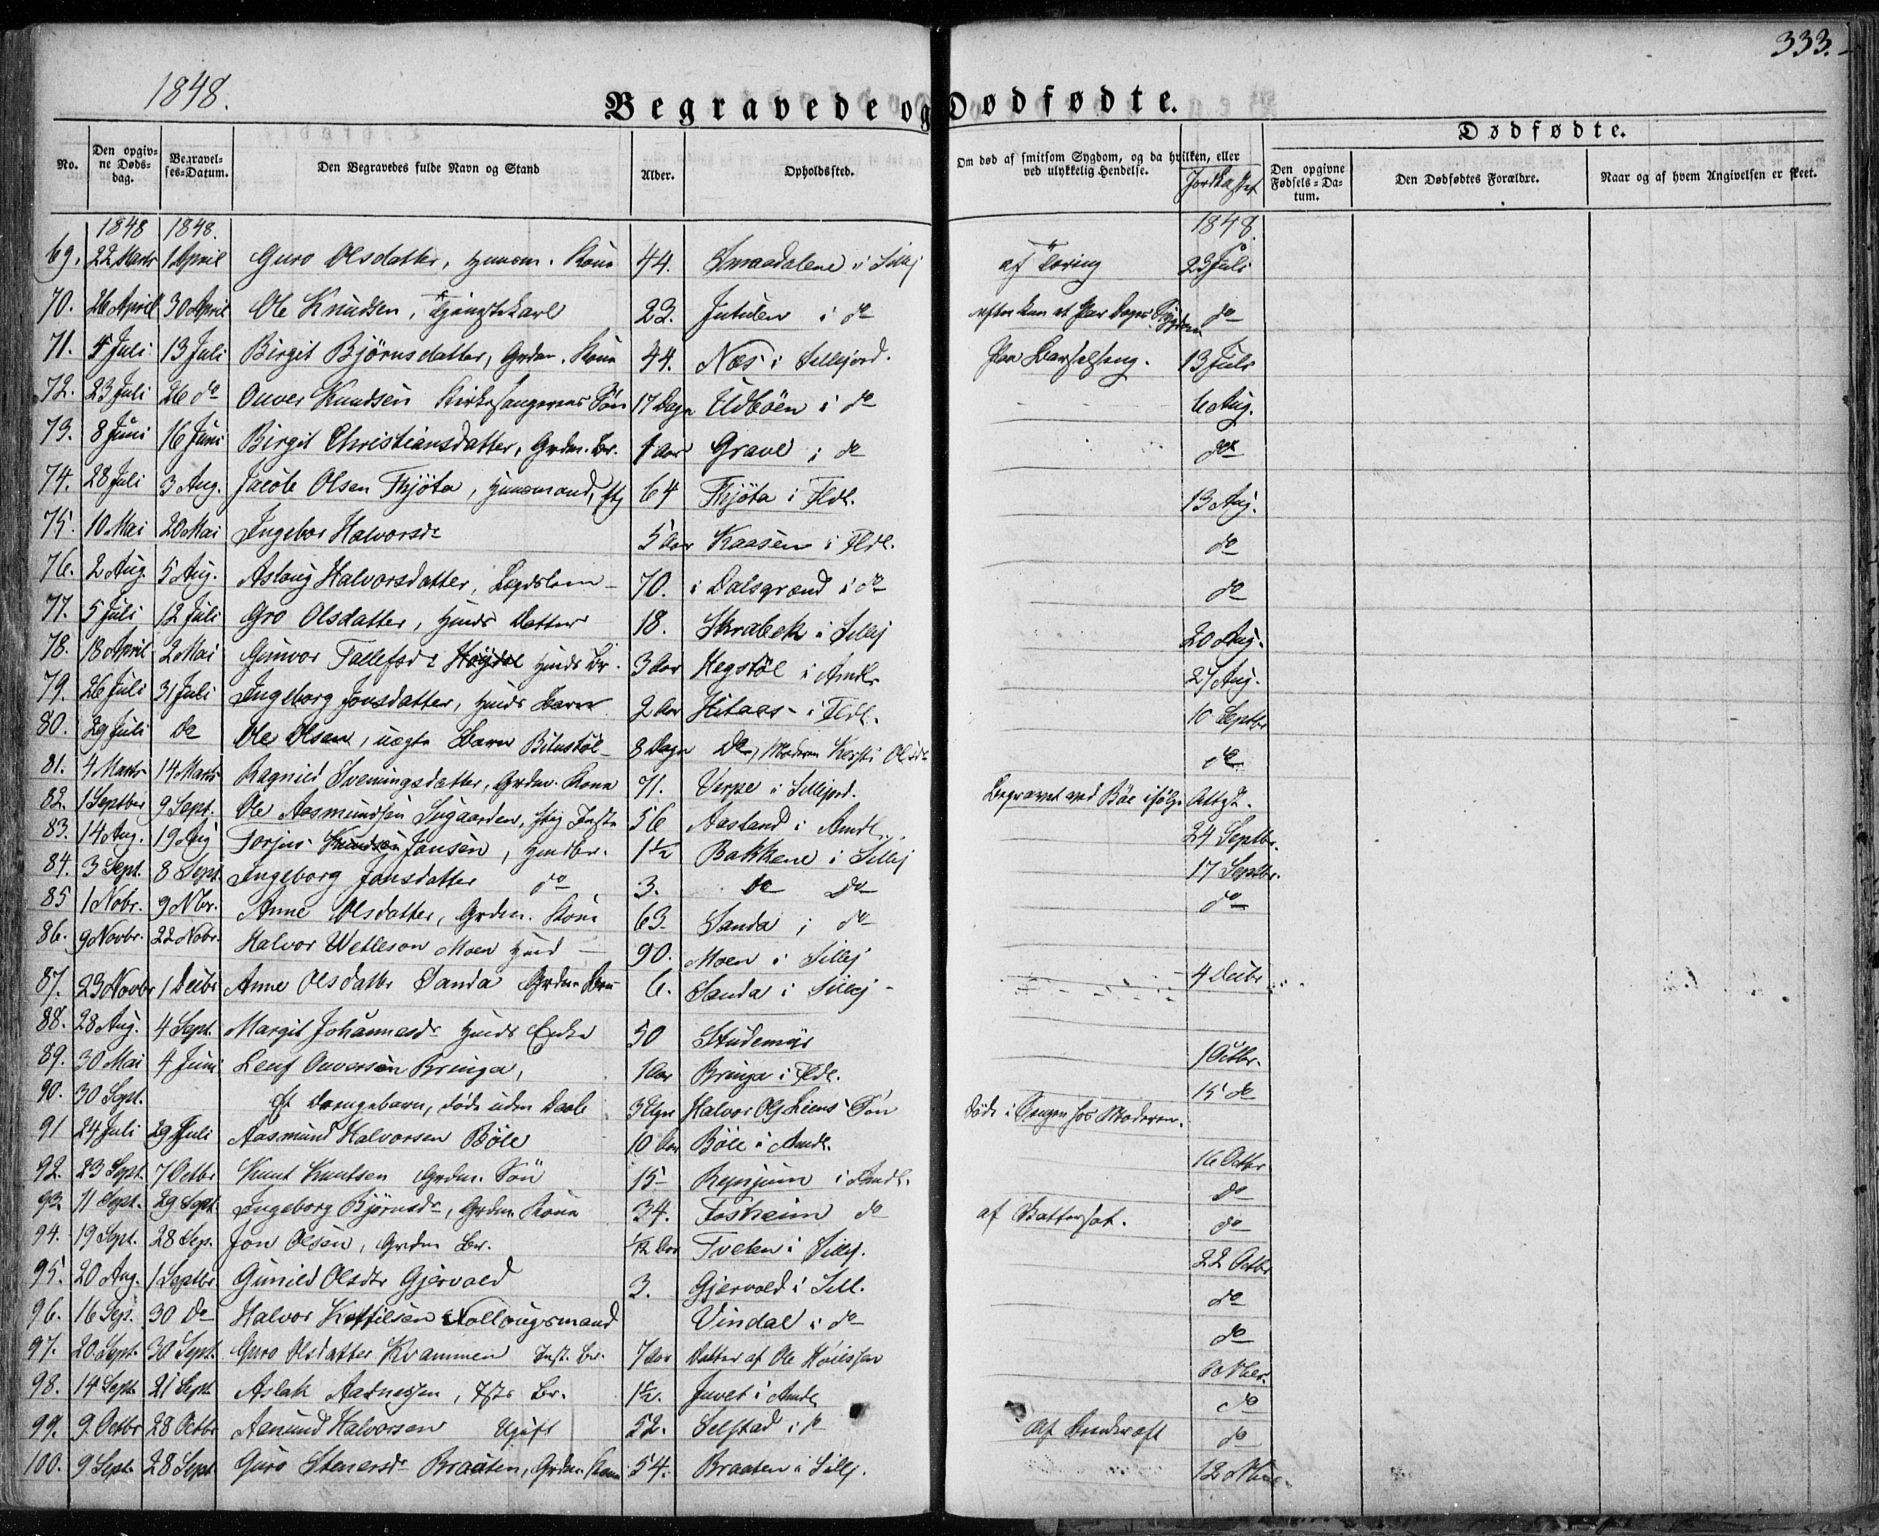 333.
1848.
Begravede og Dødfødte.
Dødfødte.
No. Den opgivne Dødsdag. Begravelses-Datum. Den Begravedes fulde Navn og Stand Alder. Opholdssted. Om død af smitsom Sygdom, og da hvilken, eller ved ulykkelig Hendelse. Jordkastet Den opgivne Fødsels-Datum. Den Dødfødtes Forældre. Naar og af hvem Angivelsen er skeet.
1848 1848. 1848.
69. 22 Marts 1 April Guro Olsdatter, Huusm. Kone 44. Smaadalene i Sillej af Tæring 23 Juli
70. 26 April 30 April Ole Knudsen, Tjenstekarl 22. Jutulen i do efter kun et Par Dages Sygdom do
71. 5 Juli 13 Juli Birgit Bjørnsdatter, Grdm. Kone 44. Næs i Sillejord. paa Barselseng. 13 Juli
72. 23 Juli 26 do Onver Knudsen Kirkesangerens Søn 17 Dage Udbøen i do 6 Aug.
73. 8 Juni 16 Juni Birgit Christiansdatter, Grdm. Br. 1 Aar Grave i do do
74. 28 Juli 3 Aug. Jacob Olsen Thjøta, Huusmand, 64 Thjøta i Fldl. 13 Aug.
75. 10 Mai 20 Mai Ingebor Halvorsdr 5 Aar Kaasen i Fldl. do
76. 2 Aug. 5 Aug. Aslaug Halvorsdatter, Lægdslem 70. i Dalsgrænd i do do
77. 5 Juli 12 Juli Gro Olsdatter, Huusds Datter 18. Skrabek i Sillej 20 Aug.
78. 18 April 2 Mai Gunvor Tallefsdr Høydal Huusds Br. 3 Aar Hegstøl i Amdl. 27 Aug.
79. 26 Juli 31 Juli Ingeborg Jonsdatter, Huusds Barn 2 Aar Kitaas i Fldl. 10 Septbr
80. 29 Juli do Ole Olsen, uægte Barn Bitustøl 8 Dage do, Moderen Kersti Olsdr do
81. 4 Marts 14 Marts Ragnild Sveinungsdatter, Grdm. Kone 71. Verpe i Sillejord. Begravet ved Bøe ifølge Attest.
82. 1 Septber 9 Sept. Ole Aasmundsen 56 Aasland i Amdl. 24 Septbr.
83. 14 Aug. 19 Aug Torjus Knudsen Jonsen, Huusds Br. 1½ Bakkene i Sillej 17 Septbr.
84. 3 Sept. 8 Sept. Ingeborg Jonsdatter do 3. do do do
85 1 Nobr. 9 Nbr. Anne Olsdatter, Grdm. Kone 63. Sanda i do
86. 9 Novbr. 22 Nobr. Halvor Wetleson Moen Huusd 90. Moen i Sillej
87. 23 Novbr 1 Decbr Anne Olsdatter Sanda Grdm. Barn 6. Sanda i Sillej 4 Decbr
88. 28 Aug. 4 Sept. Margit Johannesdr Huusds Enke 50
89. 30 Mai 4 Juni Leuf Onversen Bringa, 1 Aar Bringa i Fldl. 1 Octbr.
90. 30 Sept. Et Drengebarn, døde uden Daab 3 Halvor Søn 15 do
Døde i Sengen hos Moderen.
91 24 Juli 29 Juli Aasmund Halvorsen Bøle 10 Aar Bøle i Amdl.
92. 23 Sept. 7 Octbr Knut Knutsen Grdm. Søn 15 i Amdl. 16 Octbr
93. 11 Sept. 29 Sept. Ingeborg Bjørnsdr, Grdm. Kone 34. Fosheim do af Vattersot. do
94. 19 Sept. 28 Sep. Jon Olsen, Grdm Br. 1/12 Aar Tveten i Sillej. do
95. 20 Aug. 1 Septbr Gunild Olsdtr Gjervold 3. Gjervold i Sill. 22 Octbr
96. 16 Sep. 30 do Halvor Kettilsen Follougsmand Vindal i do do
97. 20 Sept. 30 Sept. Guro Olsdatter Kvammen Inst. Br. 7 Aar Datter af Ole do
98. 14 Sept. 21 Sept Aslak Aadnessen, Br. 1½. Juvet i Amdl
99. 9 Octbr 28 Octbr Aanund Halvorsen Ugift 52. Selstad i do do
100. 9 Sept. 28 Sept Guro Stenersdr Braaten, Grdm. Kone 54. Braaten i Sillj. 12 Nber.